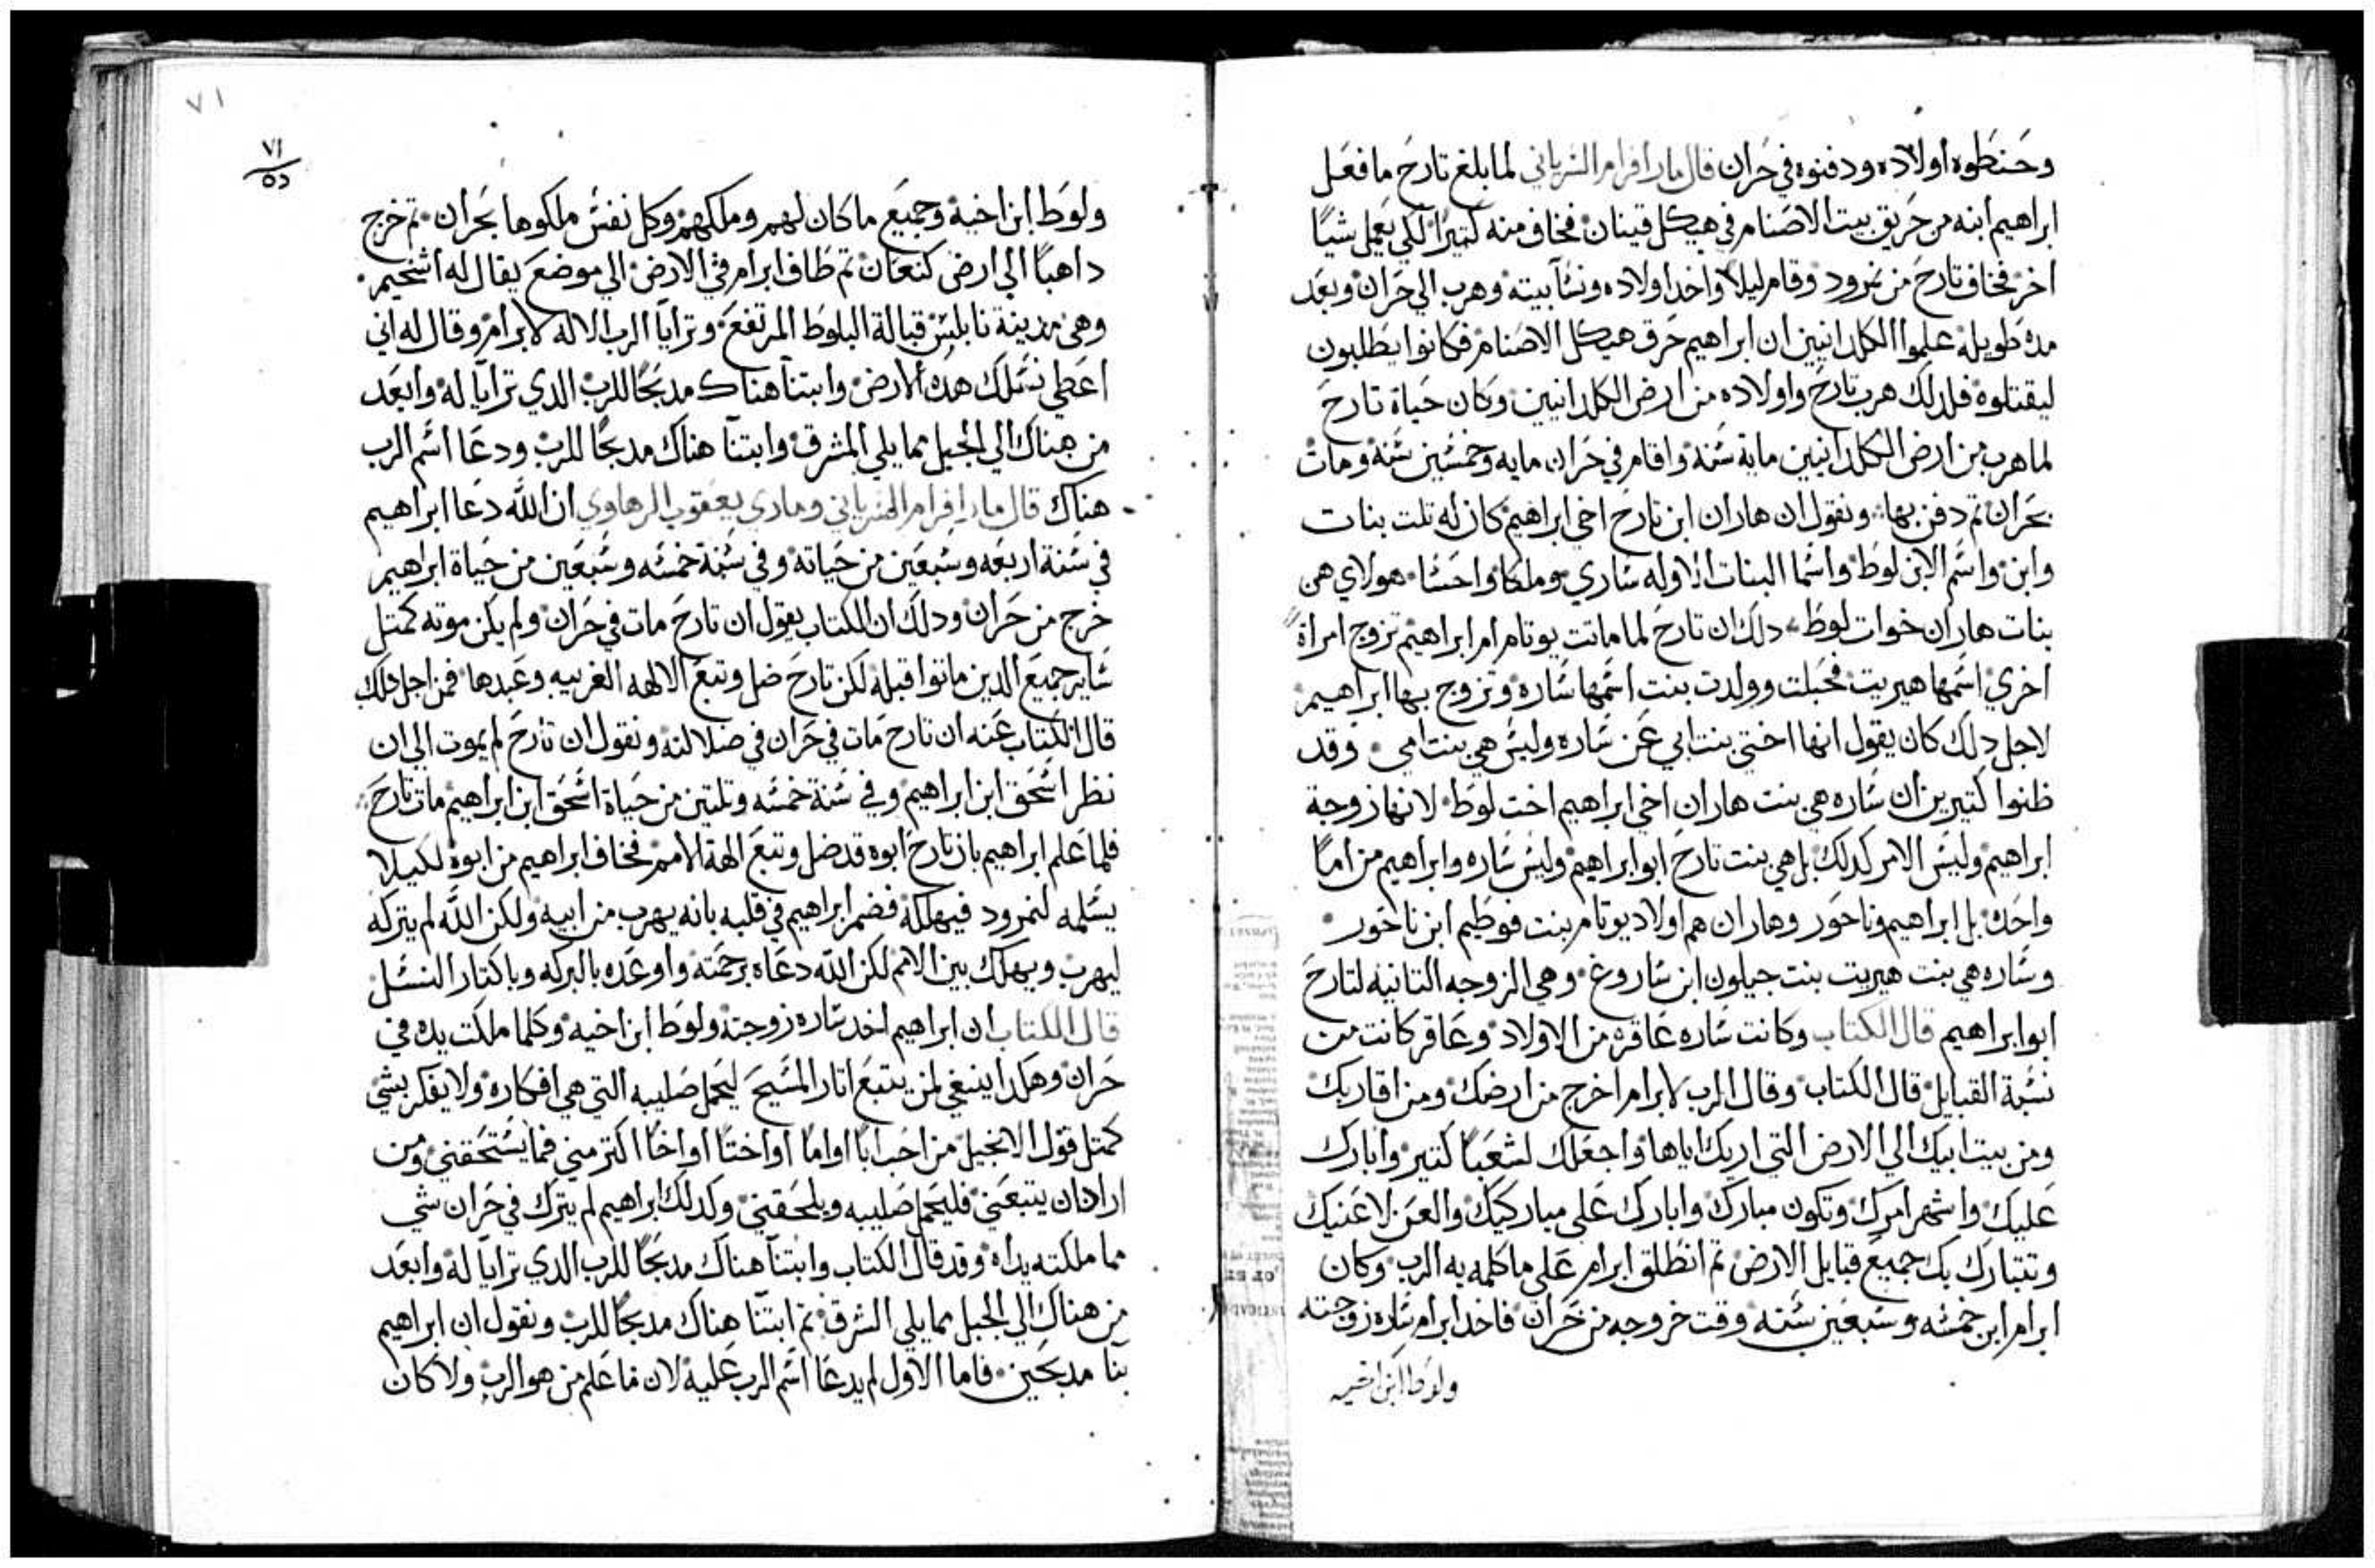 وحنطوه اولاده ودفنوه في حران قال مار افرام السرياني لما بلغ تارح ما فعل
ابراهيم ابنه من حريق بيت الاصنام في هيكل قينان فخاف منه كتيرًا لكي يعمل شيًا
اخر فخاف تارح من نمرود وقام ليلا واخد اولاده ونسا بيته وهرب الي حران وبعد
مده طويله علموا الكلدانيين ان ابراهيم حرق هيكل الاصنام فكانوا يطلبون
ليقتلوه فلدلك هرب تارح واولاده من ارض الكلدانيين وكان حياة تارح
لما هرب من ارض الكلدانيين ماية سنه واقام في حران مايه وخمسين سنه ومات
بحران تم دفن بها ونقول ان هاران ابن تارح اخي ابراهيم كان له تلت بنات
وابن واسم الابن لوط واسما البنات الاوله ساري وملكا واحسا هولاي هن
بنات هاران خوات لوط دلك ان تارح لما ماتت يوتام ام ابراهيم تزوج امراة
اخري اسمها هيريت فحبلت وولدت بنت اسمها ساره وتزوج بها ابراهيم
لاجل دلك كان يقول انها اختي بنت ابي عن ساره وليس هي بنت امي وقد
ظنوا كتيرين ان ساره هي بنت هاران اخي ابراهيم اخت لوط لانها زوجة
ابراهيم وليس الامر كدلك بل هي بنت تارح ابو ابراهيم وليس ساره وابراهيم من امًا
واحده بل ابراهيم وناحور وهاران هم اولاد يوتام بنت فوطيم ابن ناحور
وساره هي بنت هيريت بنت جيلون ابن ساروغ وهي الزوجه التانيه لتارح
ابو ابراهيم قال الكتاب وكانت ساره عاقره من الاولاد وعاقر كانت من
نسبة القبايل قال الكتاب وقال الرب لابرام اخرج من ارضك ومن اقاربك
ومن بيت ابيك الي الارض التي اريك اياها واجعلك لشعبًا كتير وابارك
عليك واشهر امرك وتكون مبارك وابارك علي مباركيك والعن لاعنيك
وتتبارك بك جميع قبايل الارض تم انطلق ابرام علي ما كلمه به الرب وكان
ابرام ابن خمسه وسبعين سنه وقت خروجه من حران فاخد ابرام ساره زوجته
ولوط ابن اخيه
٧١
٧١
ولوط ابن اخيه وجميع ما كان لهم وملكهم وكل نفس ملكوها بحران تم خرج
داهبًا الي ارض كنعان تم طاف ابرام في الارض الي موضع يقال له اشخيم
وهي مدينة نابلس قبالة البلوط المرتفع وترايا الرب الاله لابرام وقال له اني
اعطي نسلك هده الارض وابتنا هناك مدبحًا للرب الدي ترايا له وابعد
من هناك الي الجبل مما يلي المشرق وابتنا هناك مدبحًا للرب ودعا اسم الرب
هناك قال مار افرام السرياني وماري يعقوب الرهاوي ان الله دعا ابراهيم
في سنة اربعه وسبعين من حياته وفي سنة خمسه وسبعين من حياة ابراهيم
خرج من حران ودلك ان الكتاب يقول ان تارح مات في حران ولم يكن موته كمتل
ساير جميع الدين ماتوا قبله لكن تارح ضل وتبع الالهه الغريبه وعبدها فمن اجل دلك
قال الكتاب عنه ان تارح مات في حران في ضلالته ونقول ان تارح لم يموت الي ان
نظر اسحق ابن ابراهيم وفي سنة خمسه وتلتين من حياة اسحق ابن ابراهيم مات تارح
فلما علم ابراهيم بان تارح ابوه قد ضل وتبع الهة الامم فخاف ابراهيم من ابوه لكيلا
يسلمه لنمرود فيهلكه فضمر ابراهيم في قلبه بانه يهرب من ابيه ولكن الله لم يتركه
ليهرب ويهلك بين الامم لكن الله دعاه برحمته واوعده بالبركه وباكتار النسل
قال الكتاب ان ابراهيم اخد ساره زوجته ولوط ابن اخيه وكلما ملكت يده في
حران وهكدا ينبغي لمن يتبع اتار المسيح ليحمل صليبه التي هي افكاره ولا يفكر بشي
كمتل قول الانجيل من احب ابًا او امًا او اختًا او اخًا اكتر مني فما يستحقني ومن
اراد ان يتبعني فليحمل صليبه ويلحقني وكدلك ابراهيم لم يترك في حران شي
مما ملكته يداه وقد قال الكتاب وابتنا هناك مدبحًا للرب الدي ترايا له وابعد
من هناك الي الجبل مما يلي الشرق تم ابتنا هناك مدبحًا للرب ونقول ان ابراهيم
بنا مدبحين فاما الاول لم يدعا اسم الرب عليه لان ما علم من هو الرب ولا كان